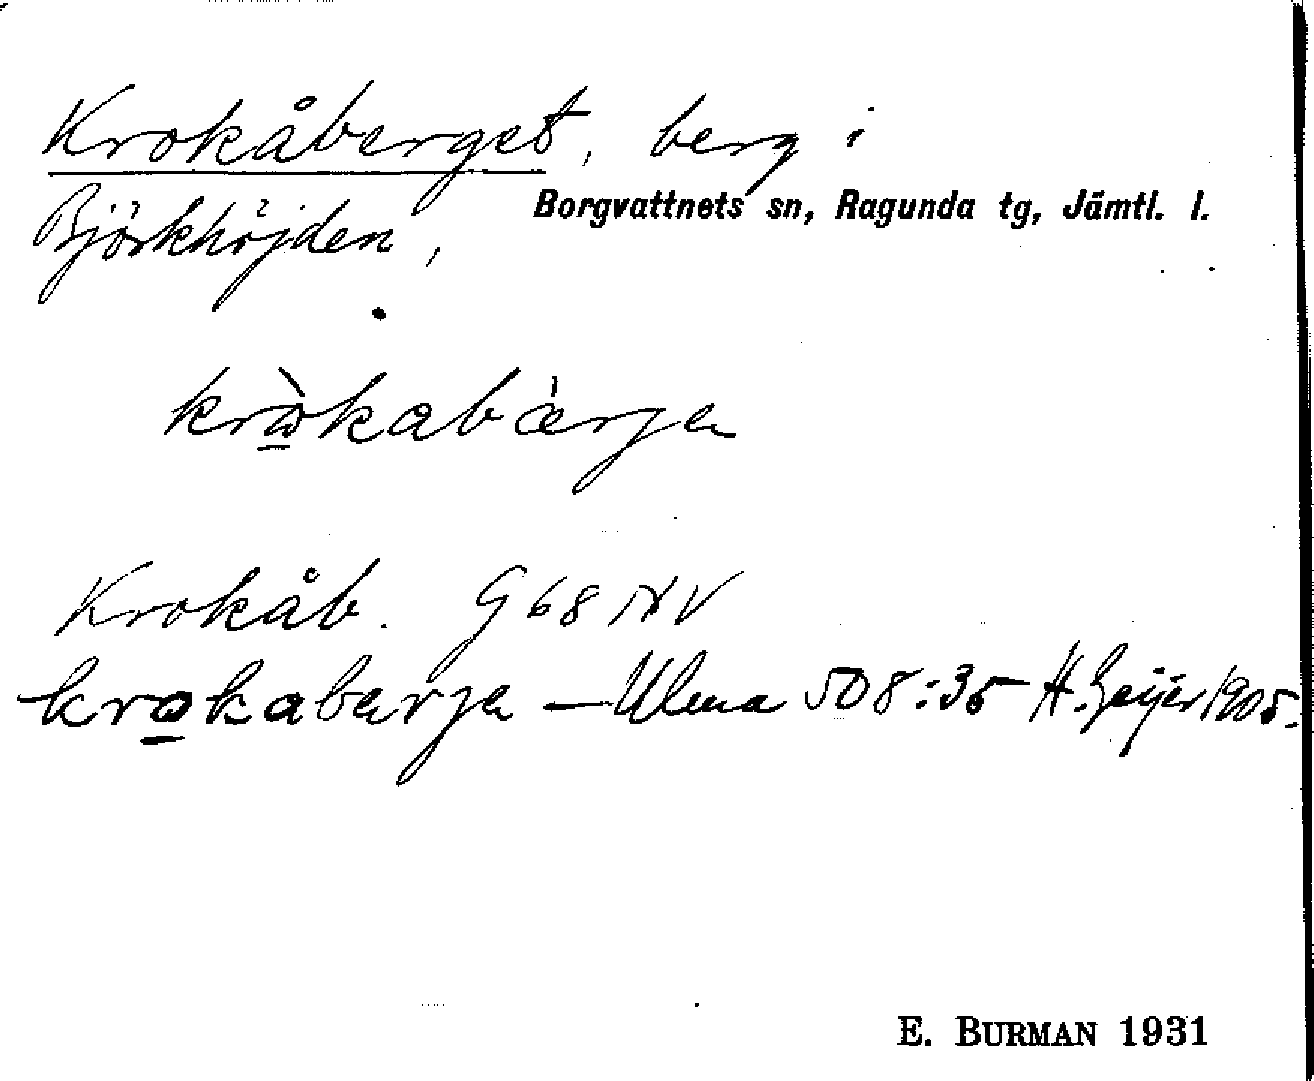 Krokåberget, berg i
Björkhöjden, Borgvattnets sn, Ragunda tg, Jämtl. l.
kròkabærja
Krokåb. G 68 NV
krokabærja — Ulma 508:35 H. Geijer 1905.
E. BURMAN 1931